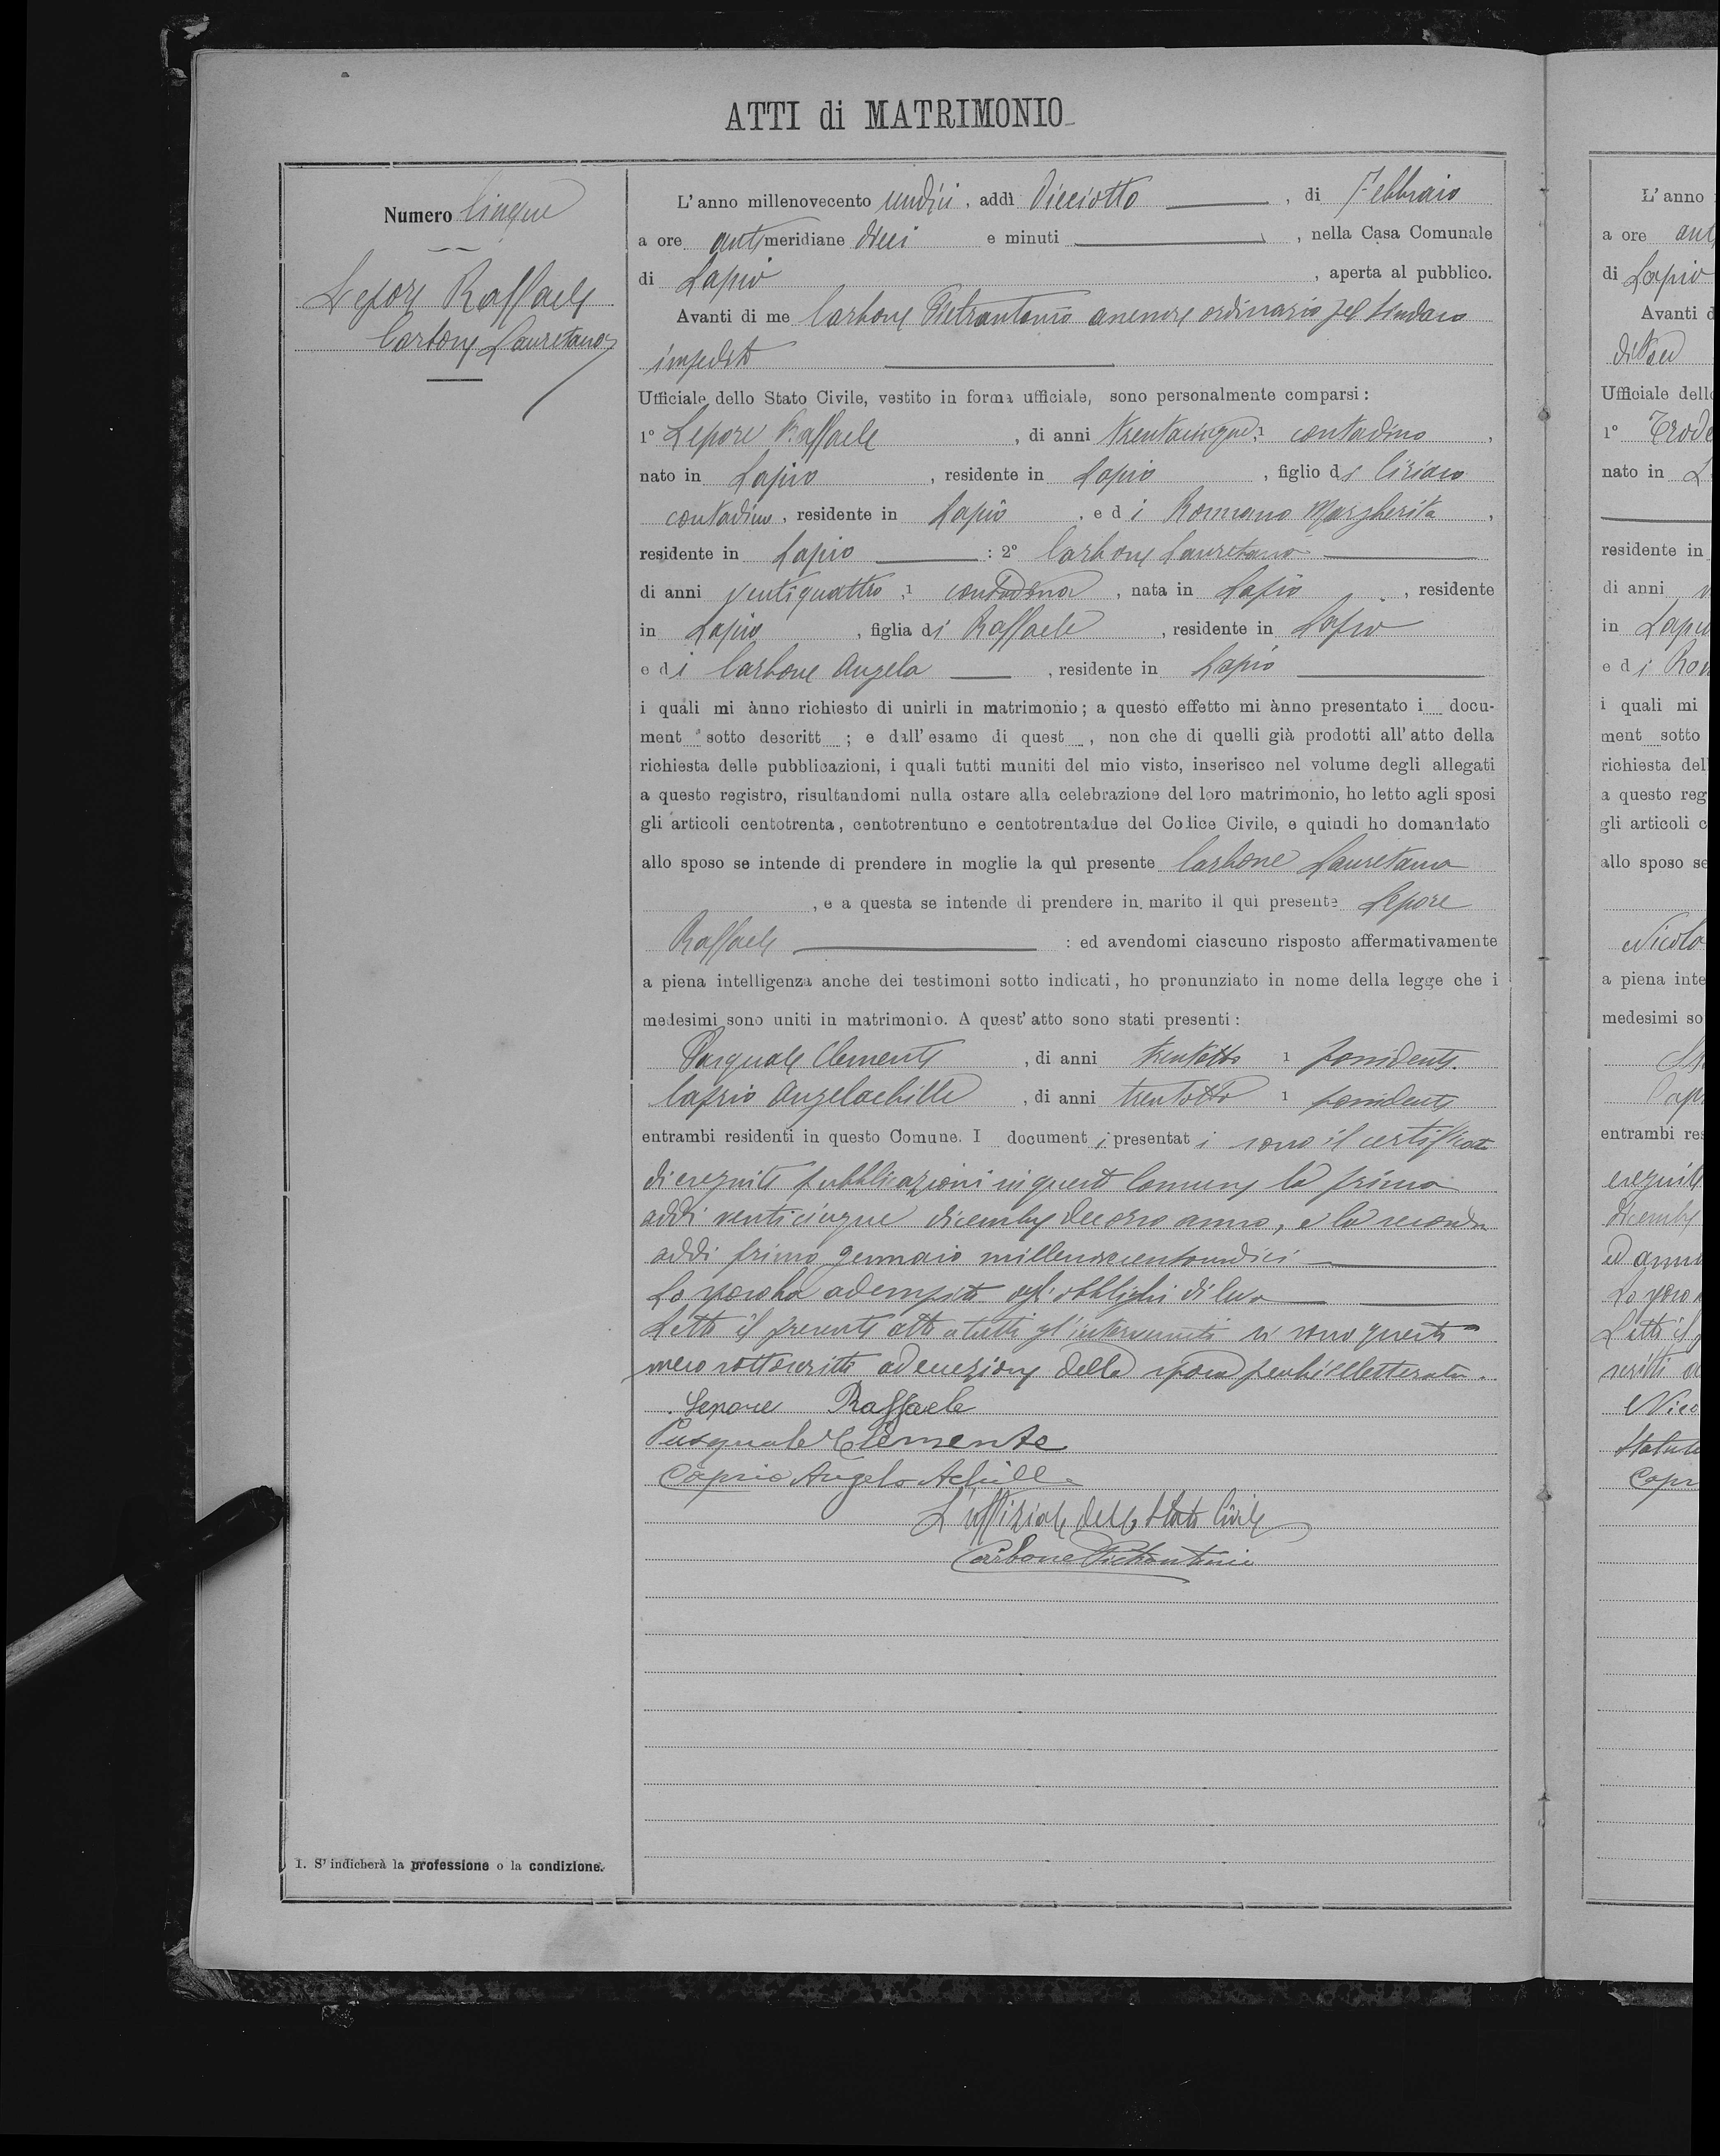 ATTI di MATRIMONIO
Numero Cinque
Lepore Raffaele
Carbone Lauretana
L'anno millenovecento undici, addì Dieciotto, di Febbraio
a ore antimeridiane dieci e minuti , nella Casa Comunale
di Lapio , aperta al pubblico.
Avanti di me Carbone Pietrantonio assessore ordinario pel Sindaco
impedito
Ufficiale dello Stato Civile, vestito in forma ufficiale, sono personalmente comparsi:
1° Lepore Raffaele, di anni trentacinque, 1 contadino,
nato in Lapio, residente in Lapio, figlio di Ciriaco
contadino, residente in Lapio, e di Romano Margherita,
residente in Lapio : 2° Carbone Lauretana
di anni ventiquattro, 1 contadina, nata in Lapio, residente
in Lapio, figlia di Raffaele, residente in Lapio
e di Carbone Angela, residente in Lapio
i quali mi ànno richiesto di unirli in matrimonio; a questo effetto mi ànno presentato i docu-
ment sotto descritt ; e dall'esame di quest , non che di quelli già prodotti all'atto della
richiesta delle pubblicazioni, i quali tutti muniti del mio visto, inserisco nel volume degli allegati
a questo registro, risultandomi nulla ostare alla celebrazione del loro matrimonio, ho letto agli sposi
gli articoli centotrenta, centotrentuno e centotrentadue del Codice Civile, e quindi ho domandato
allo sposo se intende di prendere in moglie la quì presente Carbone Lauretana
, e a questa se intende di prendere in marito il qui presente Lepore
Raffaele : ed avendomi ciascuno risposto affermativamente
a piena intelligenza anche dei testimoni sotto indicati, ho pronunziato in nome della legge che i
medesimi sono uniti in matrimonio. A quest'atto sono stati presenti:
Pasquale Clemente, di anni trentotto 1 possidente.
Caprio Angelachille, di anni trentotto 1 possidente
entrambi residenti in questo Comune. I documenti presentati sono il certificato
di eseguite pubblicazioni in questo Comune la prima
addì venticinque dicembre decorso anno, e la seconda
addì primo gennaio millenovecentoundici
Lo sposo ha adempito agli obblighi di leva
Letto il presente atto a tutti gl'intervenuti si sono questi
meco sottoscritti ad eccezione della sposa perchè illetterata.
Lepore Raffaele
Pasquale Clemente
Caprio Angelo Achille
L'uffiziale dello Stato Civile
Carbone Pietrantonio
1. S'indicherà la professione o la condizione.
L'anno
a ore ant
di Lapio
Avanti d
Ufficiale dell
1°
nato in L
residente in
di anni
in Lapio
e di
i quali mi
ment sotto
richiesta del
a questo reg
gli articoli c
allo sposo se
Nicola
a piena inte
medesimi so
entrambi res